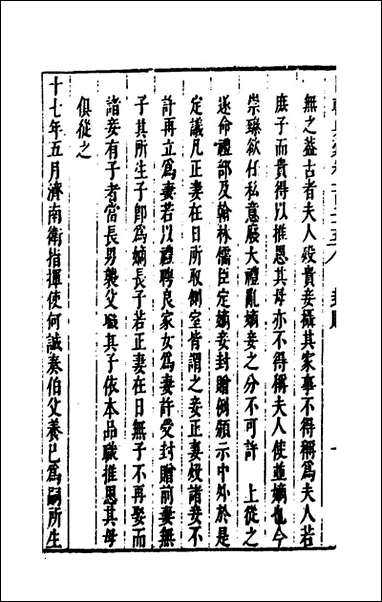 無之蓋古者夫人歿貴妾攝其家事不得稱爲夫人若
庶子而貴得以推恩其母亦不得稱夫人使並嫡也今
崇臻欲任私意廢大禮亂嫡妾之分不可許　上從之
遂命禮部及翰林儒臣定嫡妾封贈例頒示中外於是
定議凡正妻在日所取側室皆謂之妾正妻歿諸妾不
許再立爲妻若以禮聘良家女爲妻許受封贈前妻無
子其所生子即爲嫡長子若正妻在日無子不再娶而
諸妾有子者當長男襲父職其子依本品職推恩其母
俱從之
十七年五月濟南衛指揮使何誠奏伯父養已爲嗣所生